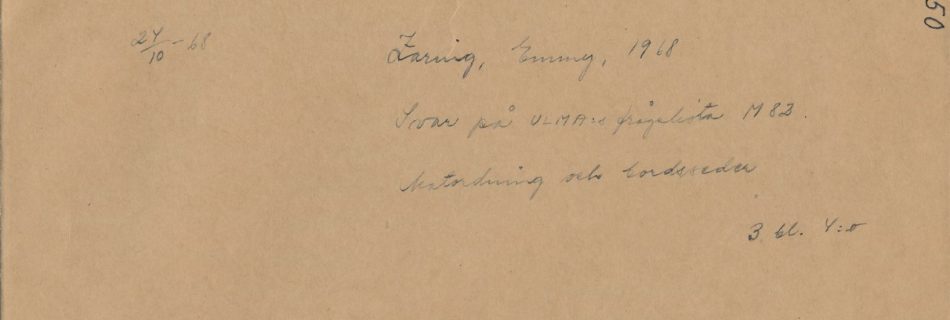 50
24/10-68
Zarnig, Emmy, 1968
Svar på ULMA:s frågelista M 82.
Matordning och bordsseder
3 bl. 4:o